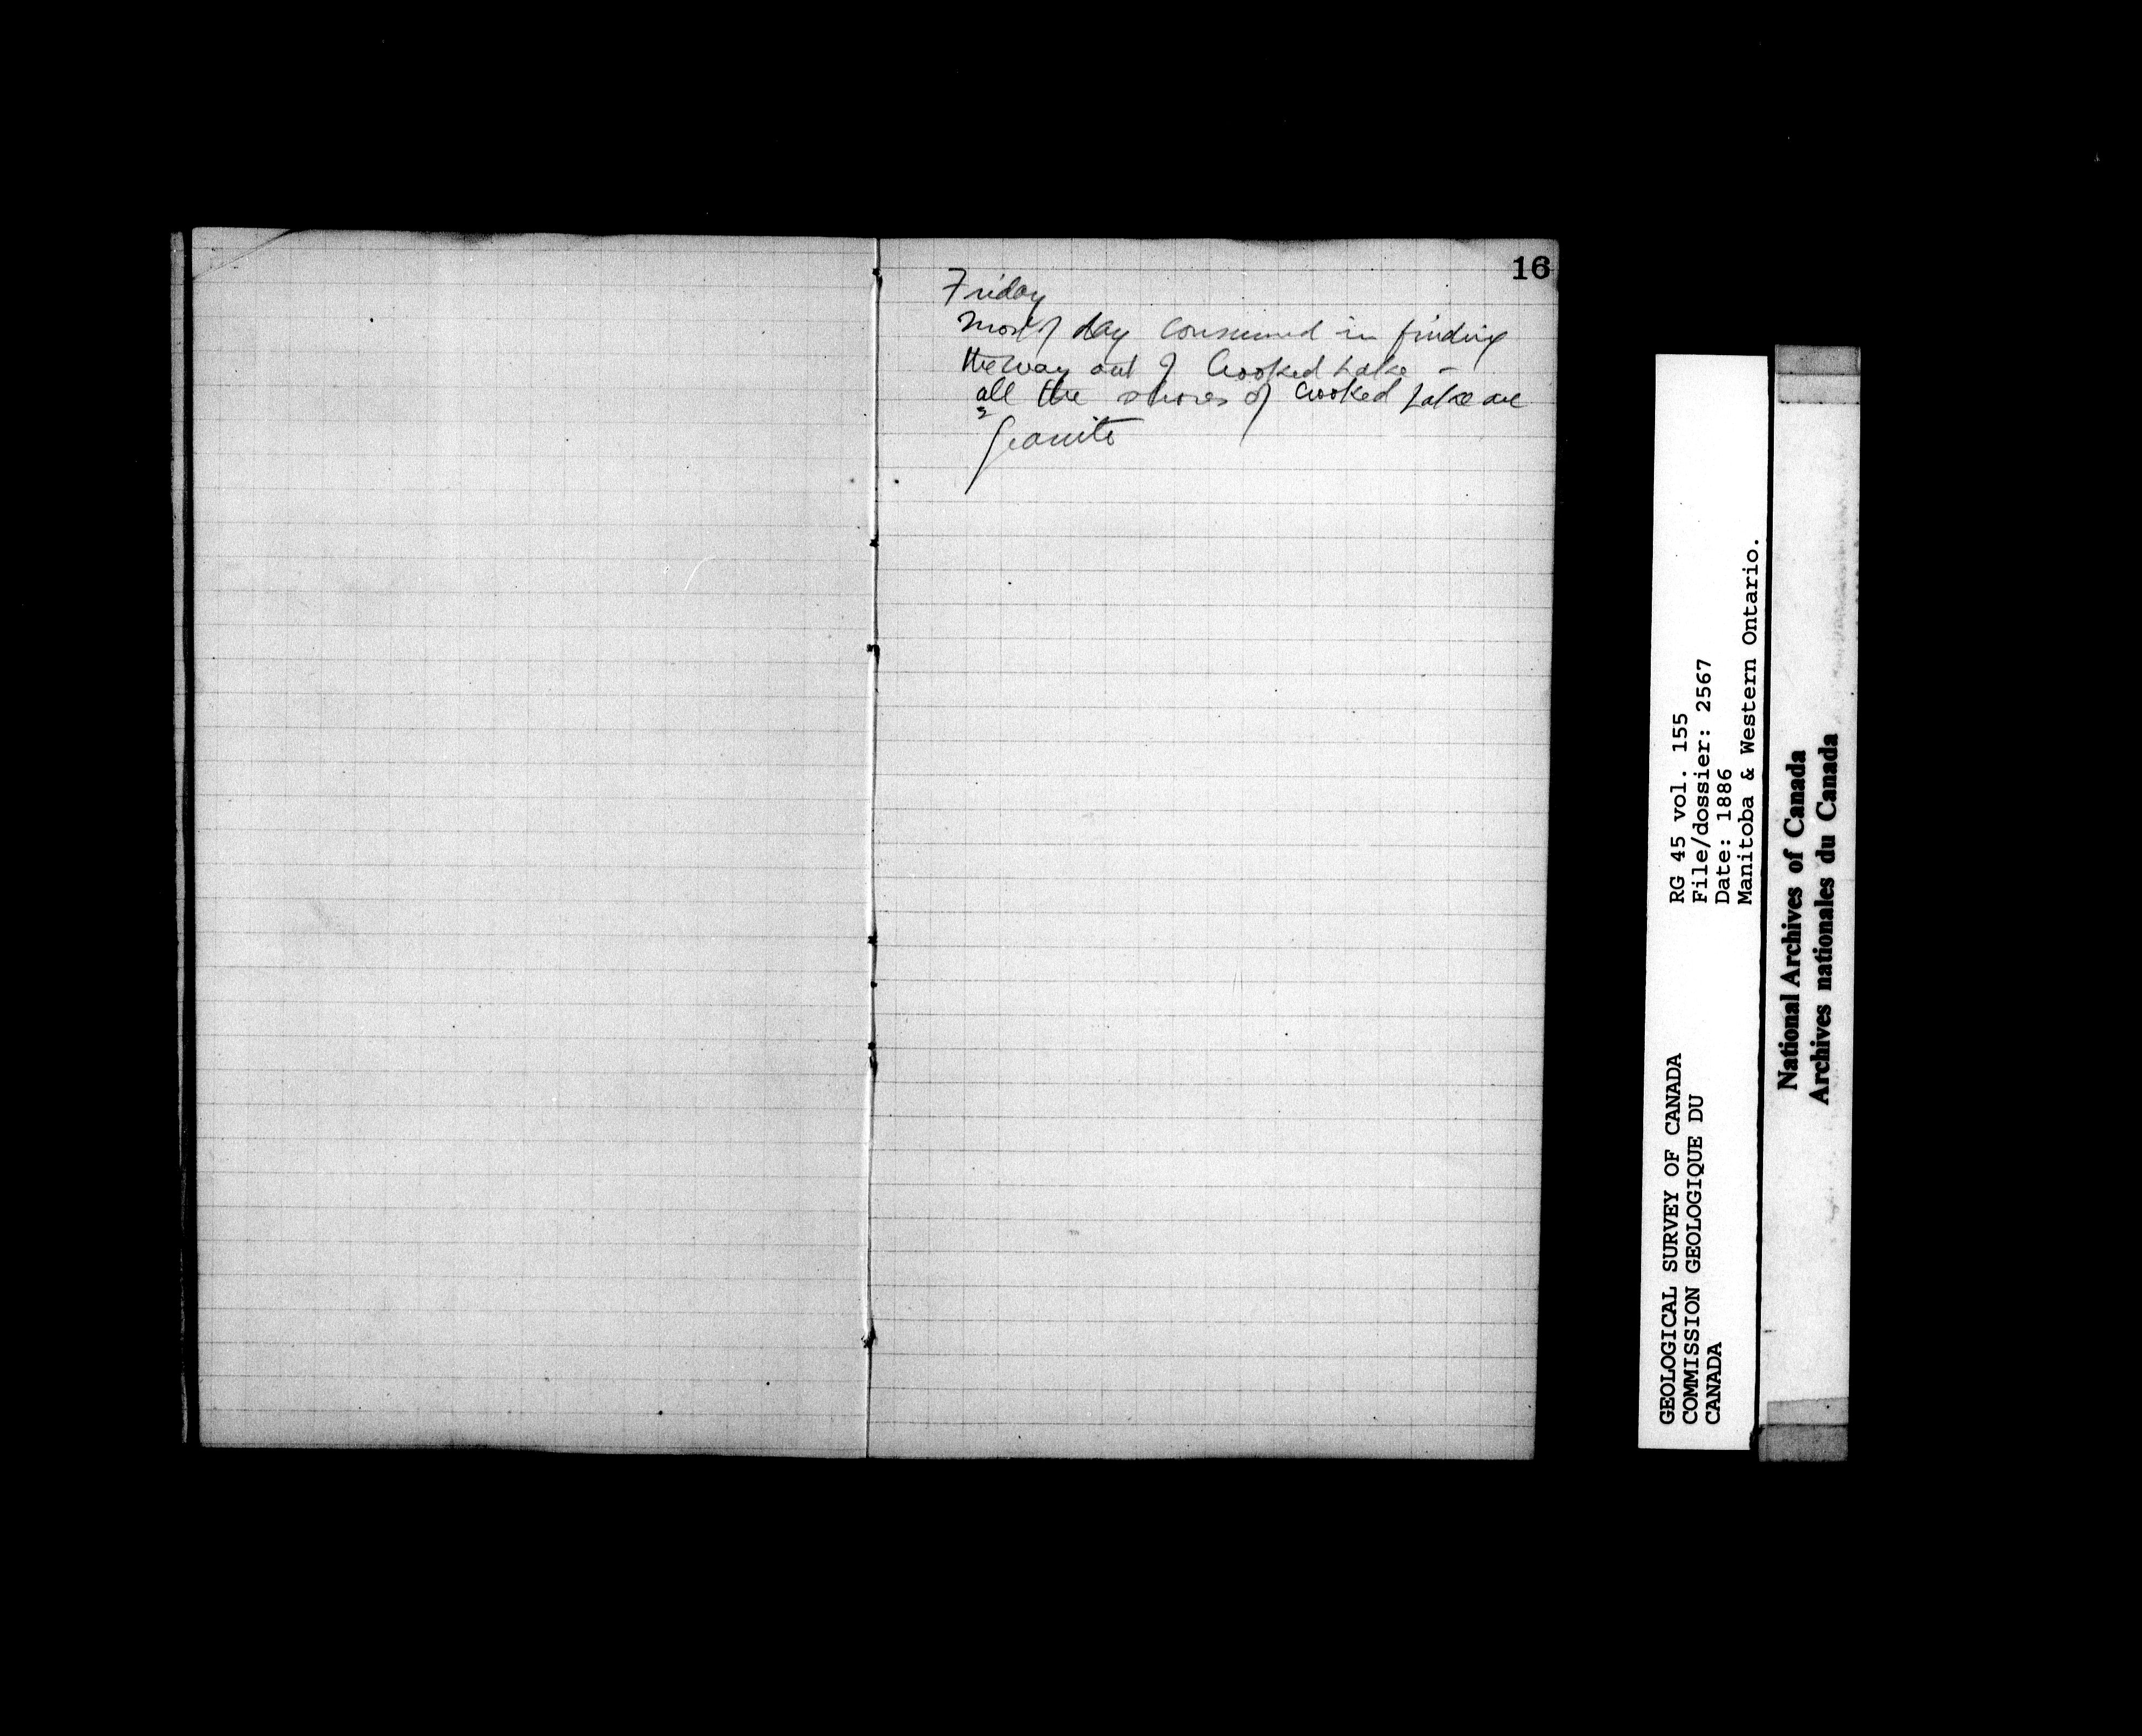 16
Friday
Most of day consumed in finding
the way out of Crooked Lake –
all the shores of Crooked Lake are
Granite
RG 45 vol. 155
File/dossier: 2567
Date: 1886
Manitoba & Western Ontario.
GEOLOGICAL SURVEY OF CANADA
COMMISSION GEOLOGIQUE DU
CANADA
National Archives of Canada
Archives nationales du Canada